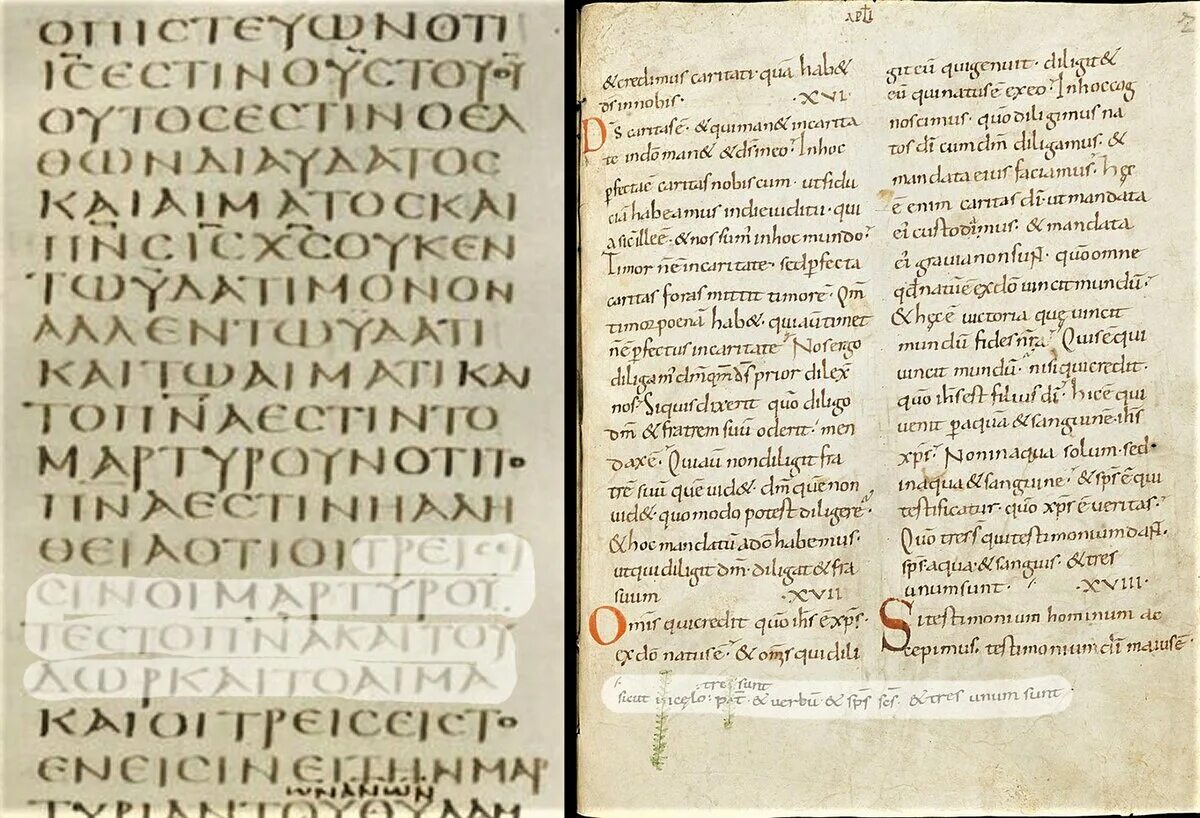 ΟΠΙCΤΕΥΩΝΟΤΙ
ΙC̅ΕCΤΙΝΟΥ̅CΤΟΥΘΥ̅
ΟΥΤΟCΕCΤΙΝΟΕΛ
ΘΩΝΔΙΑΥΔΑΤΟC
ΚΑΙΑΙΜΑΤΟCΚΑΙ
ΠΝ̅CΙC̅ΧC̅ΟΥΚΕΝ
ΤΩΥΔΑΤΙΜΟΝΟΝ
ΑΛΛΕΝΤΩΥΔΑΤΙ
ΚΑΙΤΩΑΙΜΑΤΙΚΑΙ
ΤΟΠΝ̅ΑΕCΤΙΝΤΟ
ΜΑΡΤΥΡΟΥΝΟΤΙΤΟ
ΠΝ̅ΑΕCΤΙΝΗΑΛΗ
ΘΕΙΑΟΤΙΟΙΤΡΕΙCΕΙ
CΙΝΟΙΜΑΡΤΥΡΟΥ
ΤΕCΤΟΠΝ̅ΑΚΑΙΤΟΥ
ΔΩΡΚΑΙΤΟΑΙΜΑ
ΚΑΙΟΙΤΡΕΙCΕΙCΤΟ
ΕΝΕΙCΙΝΕΙΤΗΝΜΑΡ
ΤΥΡΙΑΝΤΟΥΘΥ̅ΛΑΜ
&credimus caritati quā hab&
ds̄ innobis· ·XVI·
Ds̄ caritas ē· &quiman& incarita
te indō man& &ds̄ ineo· Inhoc
pfectaē caritas nobiscum· utfidu
ciā habeamus indieiudicii· qui
a sic illeē· &nos sum' inhoc mundo·
Timor nēincaritate· sedpfecta
caritas foras mittit timorē· Qm̄
timor poenā hab&· quiaūtimet
nēpfectus incaritate· Nosergo
diligam' dm̄ qm̄ ds̄ prior dilex
nos· Siquis dixerit quō diligo
dm̄ & fratrem suū oderit· men
dax ē· Quiaū nondiligit fra
trē suū quē uid&· dm̄ quē non
uid& quomodo potest diligere·
&hoc mandatū adō habemus·
utqui diligit dm̄· diligat & fra
suum ·XVII·
Omīs quicredit quō ihs̄ ē xps̄·
exdō natus ē· & om̄s quidili
git eū quigenuit· diligit&
eū quinatus ē exeo· Inhoc cog
noscimus· quō diligimus na
tos dī cum dm̄ diligamus· &
mandata eius faciamus· hęc
ē enim caritas dī· ut mandata
ei' custodimus· & mandata
ei' grauia nonsunt· quō omne
qd̄ natū ē exdō uincit mundū·
& hęc ē uictoria quę uincit
mundū fides nr̄a· Quis ē qui
uincit mundū· nisi quicredit·
quō ihs̄ est filius dī· hic ē qui
uenit p aquā & sanguinē· ihs̄
xps̄· Noninaqua solum· sed
inaqua & sanguine· & sps̄ ē qui
testificatur· quō xps̄ ē ueritas·
Quō tres s̄ quitestimonium dant·
sps̄· aqua· & sanguis· & tres
unum sunt· ·XVIII·
Sitestimonium hominum ac
cepimus· testimonium dī maius ē
tres sunt
sicut in celo· pat̄ & uerbū & sps̄ scs̄· & tres unum sunt